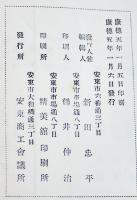 康德五年一月五日印刷
康德五年一月六日發行
安東市六番通三丁目
發行人兼編輯人 新田忠平
安東市市場通八丁目
印刷人 鶴井仲治
安東市市場通八丁目
印刷所 精美館印刷所
安東市大和橋通三丁目
發行所 安東商工會議所